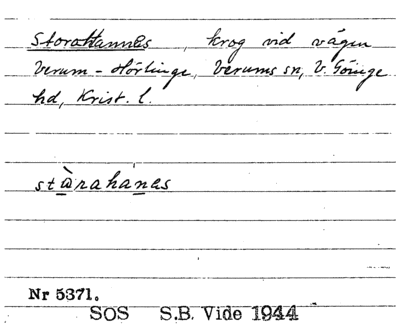 Storahannes, krog vid vägen
Verum - Hörlinge, Verums sn, V. Göinge
hd, Krist. l.
stàrahánas
Nr 5371.
SOS S.B. Vide 1944